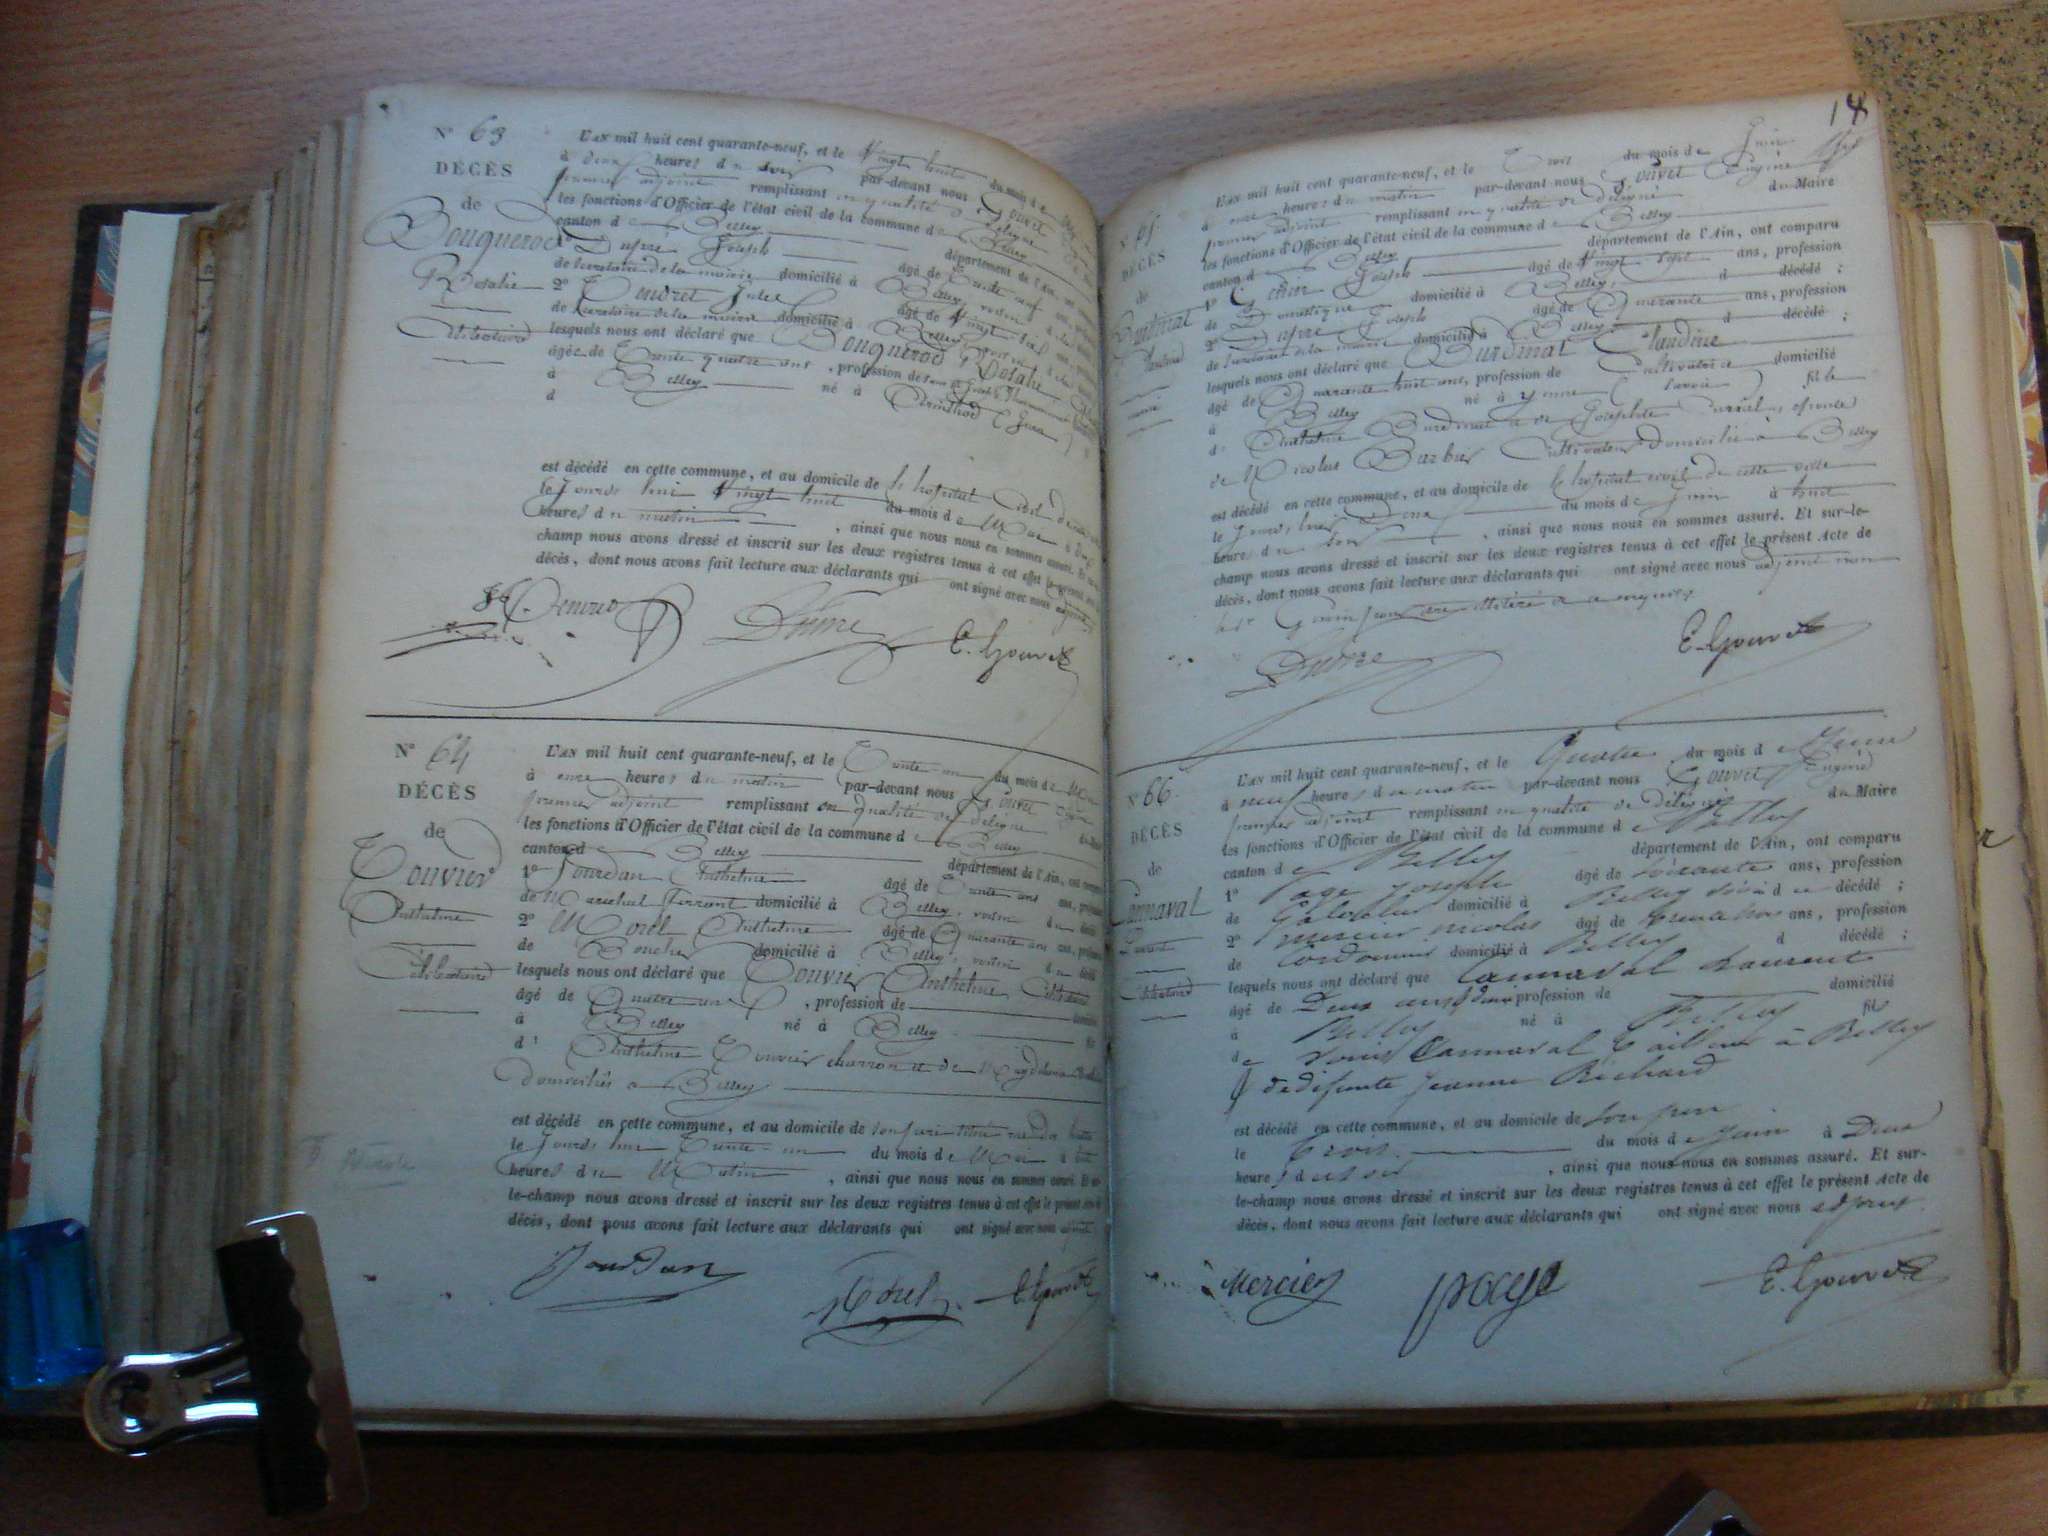 N° 63
DÉCÈS
de
Bouquerod
Rosalie
Célibataire
L'AN mil huit cent quarante-neuf, et le Vingt huit du mois de
à deux heures du soir par-devant nous Gouvet
premier adjoint remplissant en qualité de délégué
les fonctions d'Officier de l'état civil de la commune de Belley
canton de Belley département de l'Ain, ont
1° Dupré Joseph âgé de trente
de Secrétaire de la mairie domicilié à Belley, voisin
2° Tendret Jules âgé de Vingt
de Secrétaire de la mairie domicilié à Belley, voisin
lesquels nous ont déclaré que Bouquerod Rosalie
âgée de Trente quatre ans, profession de
à Belley né à Arinthod (Jura)
d
est décédé en cette commune, et au domicile de l'hôpital Civil de
le jourd'hui Vingt huit du mois de Mai à
heures du matin, ainsi que nous nous en sommes assuré. Et
champ nous avons dressé et inscrit sur les deux registres tenus à cet effet le présent
décès, dont nous avons fait lecture aux déclarants qui ont signé avec nous adjoint
J. Tendret Dupré E. Gouvet
N° 64
DÉCÈS
de
Touvier
Anthelme
Célibataire
L'AN mil huit cent quarante-neuf, et le Trente-un du mois de Mai
à onze heures du matin par-devant nous Gouvet
premier adjoint remplissant en qualité de délégué
les fonctions d'Officier de l'état civil de la commune de Belley
canton de Belley département de l'Ain, ont
1° Jourdan Anthelme âgé de Trente ans
de Maréchal Ferrant domicilié à Belley, voisin du
2° Morel Anthelme âgé de Quarante ans ans,
de Boucher domicilié à Belley, voisin du
lesquels nous ont déclaré que Touvier Anthelme Célibataire
âgé de Quatre ans, profession de
à Belley né à Belley
d' Anthelme Touvier charron et de Magdeleine
domiciliés à Belley
est décédé en cette commune, et au domicile de son père
le jourd'hui Trente-un du mois de Mai à
heures du Matin, ainsi que nous nous en sommes assuré. Et sur-
le-champ nous avons dressé et inscrit sur les deux registres tenus à cet effet le présent
décès, dont nous avons fait lecture aux déclarants qui ont signé avec nous adjoint
Jourdan Morel E. Gouvet
18
N° 65.
DÉCÈS
de
Burdinat
Claudine
L'AN mil huit cent quarante-neuf, et le Trois du mois de Juin
à onze heures du matin par-devant nous Gouvet Eugène
premier adjoint remplissant en qualité de délégué du Maire
les fonctions d'Officier de l'état civil de la commune de Belley
canton de Belley département de l'Ain, ont comparu
1° Joseph âgé de Vingt sept ans, profession
de Domestique domicilié à Belley, d décédé ;
2° Dupré Joseph âgé de Quarante ans, profession
de Secrétaire de la mairie domicilié à Belley, d décédé ;
lesquels nous ont déclaré que Burdinat Claudine
âgé de Quarante huit ans, profession de Cultivatrice domicilié
à Belley né à Yenne (Savoie) fille
d' Anthelme Burdinat et de Josephte épouse
de Nicolas Barbier Cultivateur domicilié à Belley
est décédé en cette commune, et au domicile de l'hôpital civil de cette ville
le jourd'hui du mois de Juin à huit
heures du, ainsi que nous nous en sommes assuré. Et sur-le-
champ nous avons dressé et inscrit sur les deux registres tenus à cet effet le présent Acte de
décès, dont nous avons fait lecture aux déclarants qui ont signé avec nous adjoint non
Dupré E. Gouvet
N° 66.
DÉCÈS
de
Cannaval
Laurent
Célibataire
L'AN mil huit cent quarante-neuf, et le Quatre du mois de Juin
à neuf heures du matin par-devant nous Gouvet Eugène
premier adjoint remplissant en qualité de délégué du Maire
les fonctions d'Officier de l'état civil de la commune de Belley
canton de Belley département de l'Ain, ont comparu
1° Page Joseph âgé de soixante ans, profession
de domicilié à Belley voisin de décédé ;
2° Mercier nicolas âgé de trente trois ans, profession
de Cordonnier domicilié à Belley d décédé ;
lesquels nous ont déclaré que Cannaval Laurent
âgé de Deux ans profession de domicilié
à Belley né à Belley fils
de Louis Cannaval Tailleur à Belley
& de défunte Jeanne Richard
est décédé en cette commune, et au domicile de son père
le Trois du mois de Juin à Deux
heures du soir, ainsi que nous nous en sommes assuré. Et sur-
le-champ nous avons dressé et inscrit sur les deux registres tenus à cet effet le présent Acte de
décès, dont nous avons fait lecture aux déclarants qui ont signé avec nous adjoint.
Mercier page E. Gouvet